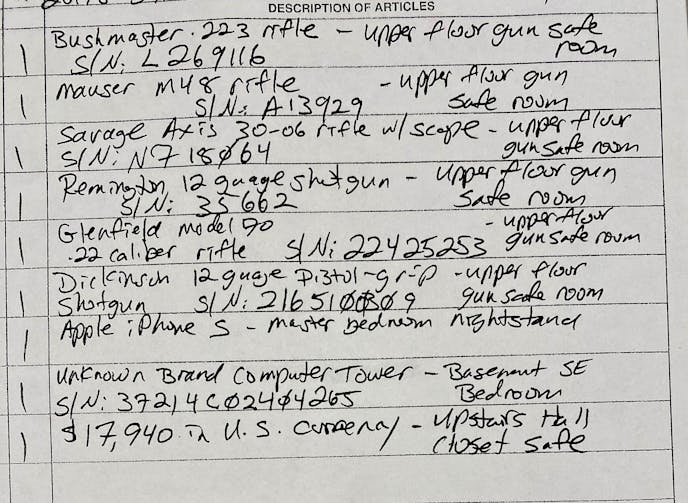 DESCRIPTION OF ARTICLES
1 Bushmaster .223 rifle - upper floor gun safe
room
S/N: L269116
1 Mauser M48 rifle - upper floor gun
S/N: A13929 safe room
1 Savage Axis 30-06 rifle w/scope - upper floor
S/N: N718064 gun safe room
1 Remington 12 guage shotgun - upper floor gun
S/N: 35662 safe room
1 Glenfield model 90 - upper floor
.22 caliber rifle S/N: 22425253 gun safe room
1 Dickinson 12 guage Pistol-grip - upper floor
Shotgun S/N: 216510309 gun safe room
1 Apple iPhone S - master bedroom nightstand
1 Unknown Brand Computer Tower - Basement SE
S/N: 37214C02404265 Bedroom
1 $17,940 in U.S. Currency - Upstairs Hall
closet safe